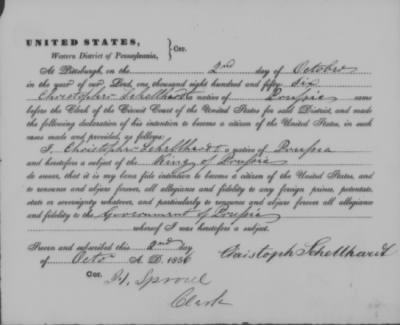 UNITED STATES,
Western District of Pennsylvania, } Cor.
At Pittsburgh, on the 2nd day of October
in the year of our Lord, one thousand eight hundred and fifty six
Christopher Schellhardt a native of Prussia came
before the Clerk of the Circuit Court of the United States for said District, and made
the following declaration of his intention to become a citizen of the United States, in such
cases made and provided, as follows:
I, Christopher Schellhardt a native of Prussia
and heretofore a subject of the King of Prussia
do swear, that it is my bona fide intention to become a citizen of the United States, and
to renounce and abjure forever, all allegiance and fidelity to any foreign prince, potentate,
state or sovereignty whatever, and particularly to renounce and abjure forever all allegiance
and fidelity to the Government of Prussia
whereof I was heretofore a subject.
Sworn and subscribed this 2nd day
of Octo A. D. 1856
Christoph Schellhardt
Cor. H. Sproul
Clerk